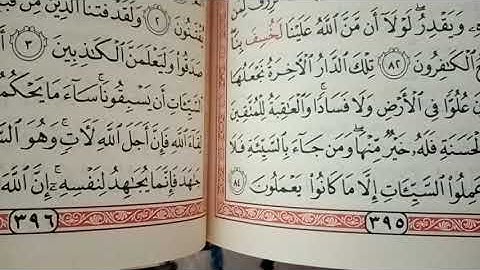 وَيَقْدِرُ ۖ لَوْلَآ أَن مَّنَّ ٱللَّهُ عَلَيْنَا لَخَسَفَ بِنَا
ٱلْكَٰفِرُونَ ٨٢ تِلْكَ ٱلدَّارُ ٱلْأَخِرَةُ نَجْعَلُهَا
عُلُوًّا فِى ٱلْأَرْضِ وَلَا فَسَادًا ۚ وَٱلْعَٰقِبَةُ لِلْمُتَّقِينَ
ٱلْحَسَنَةِ فَلَهُۥ خَيْرٌ مِّنْهَا ۖ وَمَن جَآءَ بِٱلسَّيِّئَةِ فَلَا
عَمِلُوا۟ ٱلسَّيِّـَٔاتِ إِلَّا مَا كَانُوا۟ يَعْمَلُونَ ٨٤
٣٩٥
يُفْتَنُونَ ٢ وَلَقَدْ فَتَنَّا ٱلَّذِينَ مِن
صَدَقُوا۟ وَلَيَعْلَمَنَّ ٱلْكَٰذِبِينَ ٣
ٱلسَّيِّـَٔاتِ أَن يَسْبِقُونَا ۚ سَآءَ مَا يَحْكُمُو
لِقَآءَ ٱللَّهِ فَإِنَّ أَجَلَ ٱللَّهِ لَأٓتٍ ۚ وَهُوَ
جَٰهَدَ فَإِنَّمَا يُجَٰهِدُ لِنَفْسِهِۦٓ ۚ إِنَّ ٱللَّهَ
٣٩٦